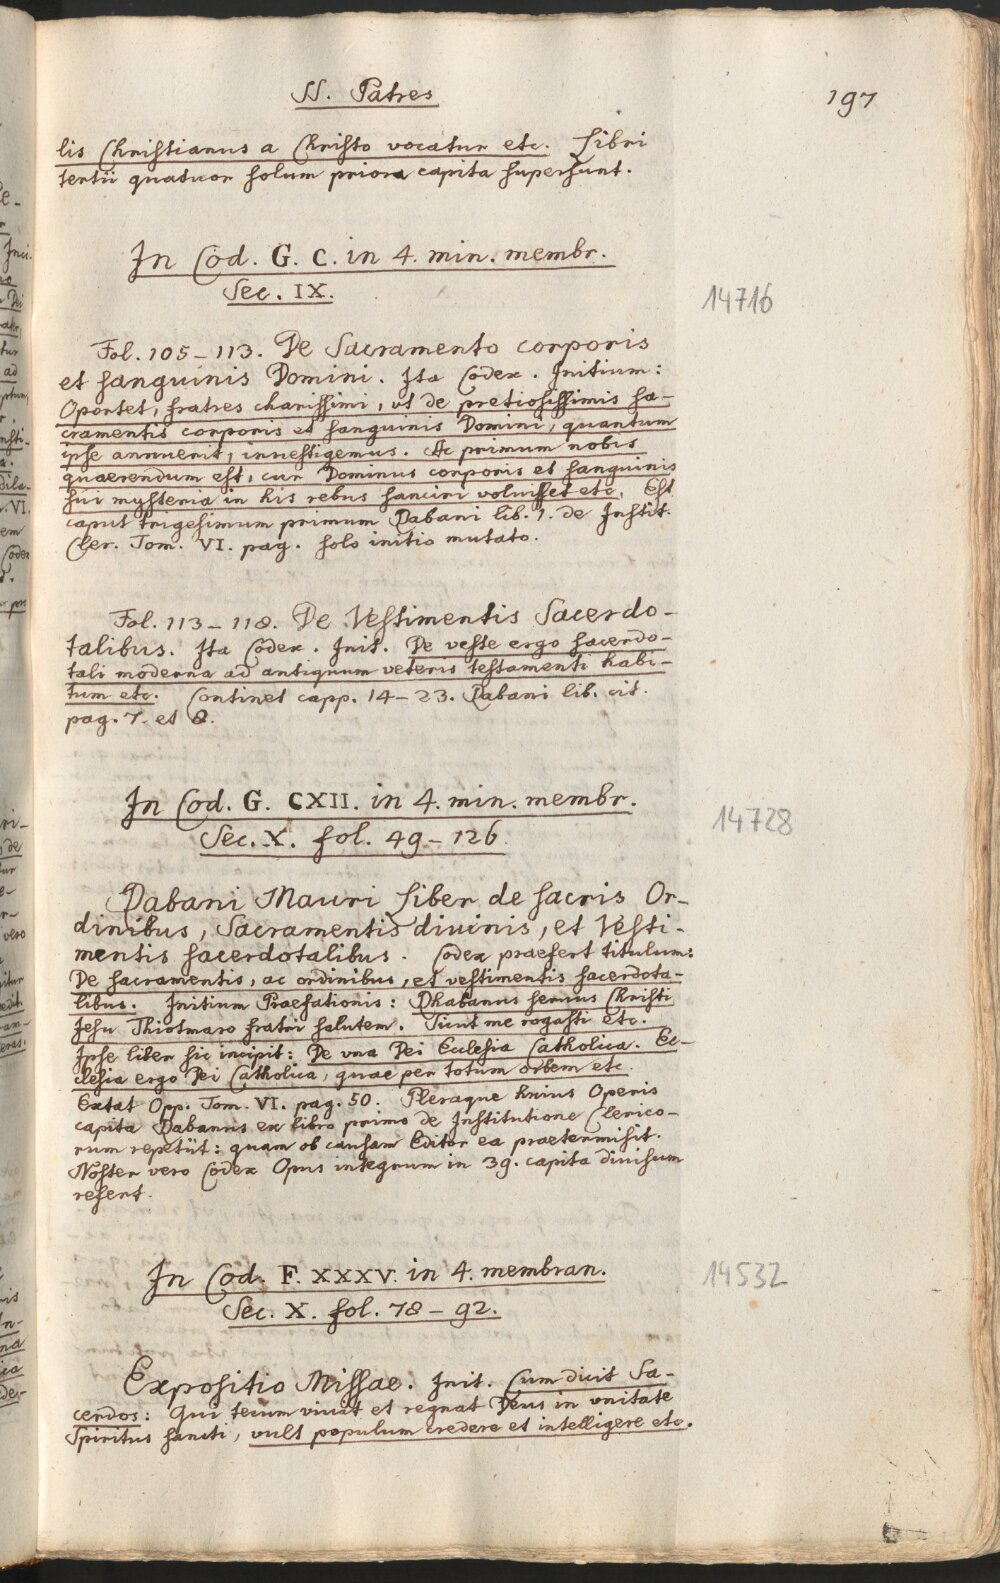 SS. Patres
197
lis Christianus a Christo vocatur etc. Libri
tertii quatuor solum priora capita supersunt.
In Cod. G. C. in 4. min. membr.
Sec. IX.
14716
Fol. 105–113. De Sacramento corporis
et sanguinis Domini. Ita Codex. Initium:
Oportet, fratres charissimi, ut de pretiosissimis sa-
cramentis corporis et sanguinis Domini, quantum
ipse annuerit, investigemus. Ac primum nobis
quaerendum est, cur Dominus corporis et sanguinis
sui mysteria in his rebus sanciri voluisset etc. Est
caput trigesimum primum Rabani lib. 1. de Instit.
Cler. Tom. VI. pag. solo initio mutato.
Fol. 113–118. De Vestimentis Sacerdo-
talibus. Ita Codex. Init. De veste ergo sacerdo-
tali moderna ad antiquum veteris testamenti habi-
tum etc. Continet capp. 14–23. Rabani lib. cit.
pag. 7. et 8.
In Cod. G. CXII. in 4. min. membr.
Sec. X. fol. 49–126.
14728
Rabani Mauri Liber de sacris Or-
dinibus, Sacramentis divinis, et Vesti-
mentis sacerdotalibus. Codex praefert titulum:
De sacramentis, ac ordinibus, et vestimentis sacerdota-
libus. Initium Praefationis: Rhabanus servus Christi
Jesu Thiotmaro fratri salutem. Sicut me rogasti etc.
Ipse liber sic incipit: De una Dei Ecclesia Catholica. Ec-
clesia ergo Dei Catholica, quae per totum orbem etc.
Extat Opp. Tom. VI. pag. 50. Pleraque huius Operis
capita Rabanus ex libro primo de Institutione Clerico-
rum repetiit: quam ob causam Editor ea praetermisit.
Noster vero Codex Opus integrum in 39. capita divisum
refert.
In Cod. F. XXXV. in 4. membran.
Sec. X. fol. 78–92.
14532
Expositio Missae. Init. Cum dicit Sa-
cerdos: Qui tecum vivat et regnat Deus in unitate
Spiritus sancti, vult populum credere et intelligere etc.